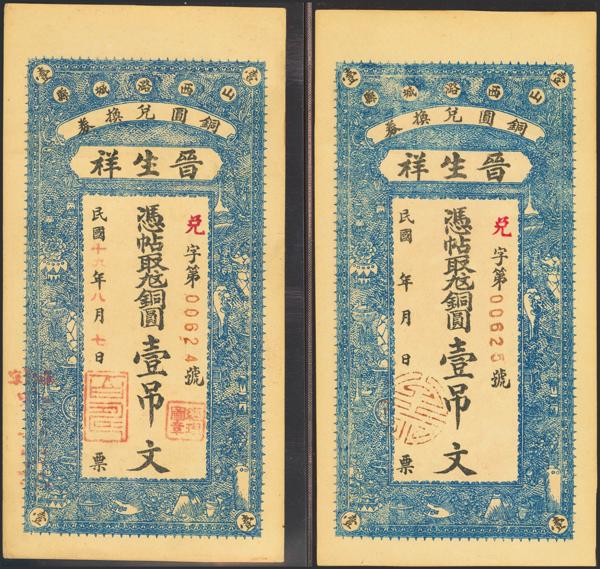 山西潞城縣
銅圓兌換券
晋生祥
兌字第00624號
憑帖取兌銅圓壹吊文
民國十九年八月七日
票
山西潞城縣
銅圓兌換券
晋生祥
兌字第00625號
憑帖取兌銅圓壹吊文
民國 年 月 日
票